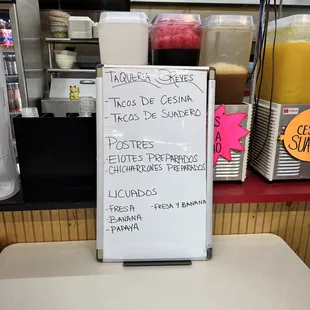 TAQUERIA 3 REYES
- TACOS DE CESINA
- TACOS DE SUADERO
POSTRES
- ELOTES PREPARADOS
- CHICHARRONES PREPARADOS
LICUADOS
- FRESA - FRESA Y BANANA
- BANANA
- PAPAYA